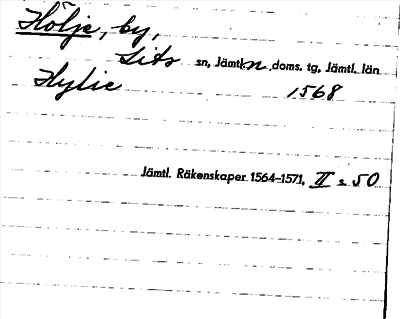 Hölje, by,
Lits sn, Jämtl. n. doms. tg, Jämtl. län
Hylie 1568
Jämtl. Räkenskaper 1564–1571, II s. 50